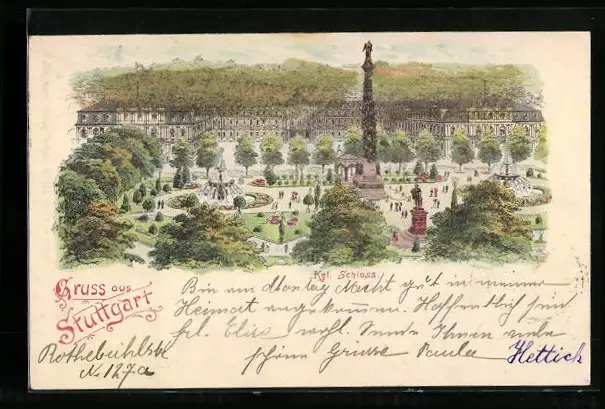 Kgl. Schloss.
Gruss aus
Stuttgart
Bin am Montag Nacht gut in meiner
Heimat angekommen. Hoffentlich sind
frl. Elise wohl. Sende Ihnen viele
schöne Grüsse Paula Hettich
Rothebühlstr
No. 127a